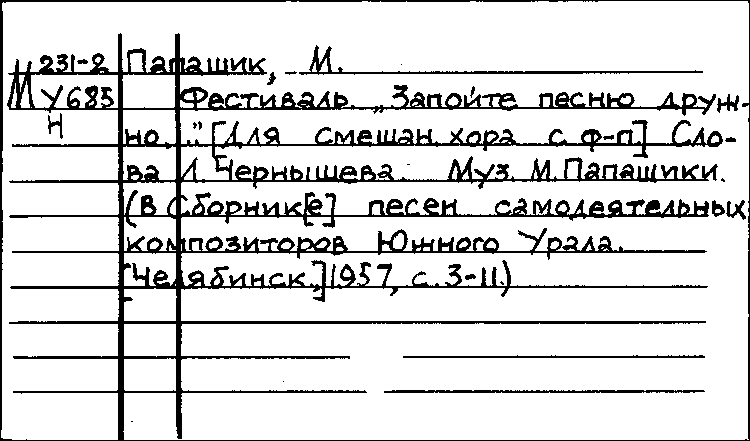 М 231-2 Папашик, М.
У685 Фестиваль. „Запойте песню друж-
Н но..." [Для смешан. хора с ф-п.] Сло-
ва Л. Чернышева. Муз. М. Папашики.
(В Сборник[е] песен самодеятельных
композиторов Южного Урала.
[Челябинск.,] 1957, с. 3-11.)